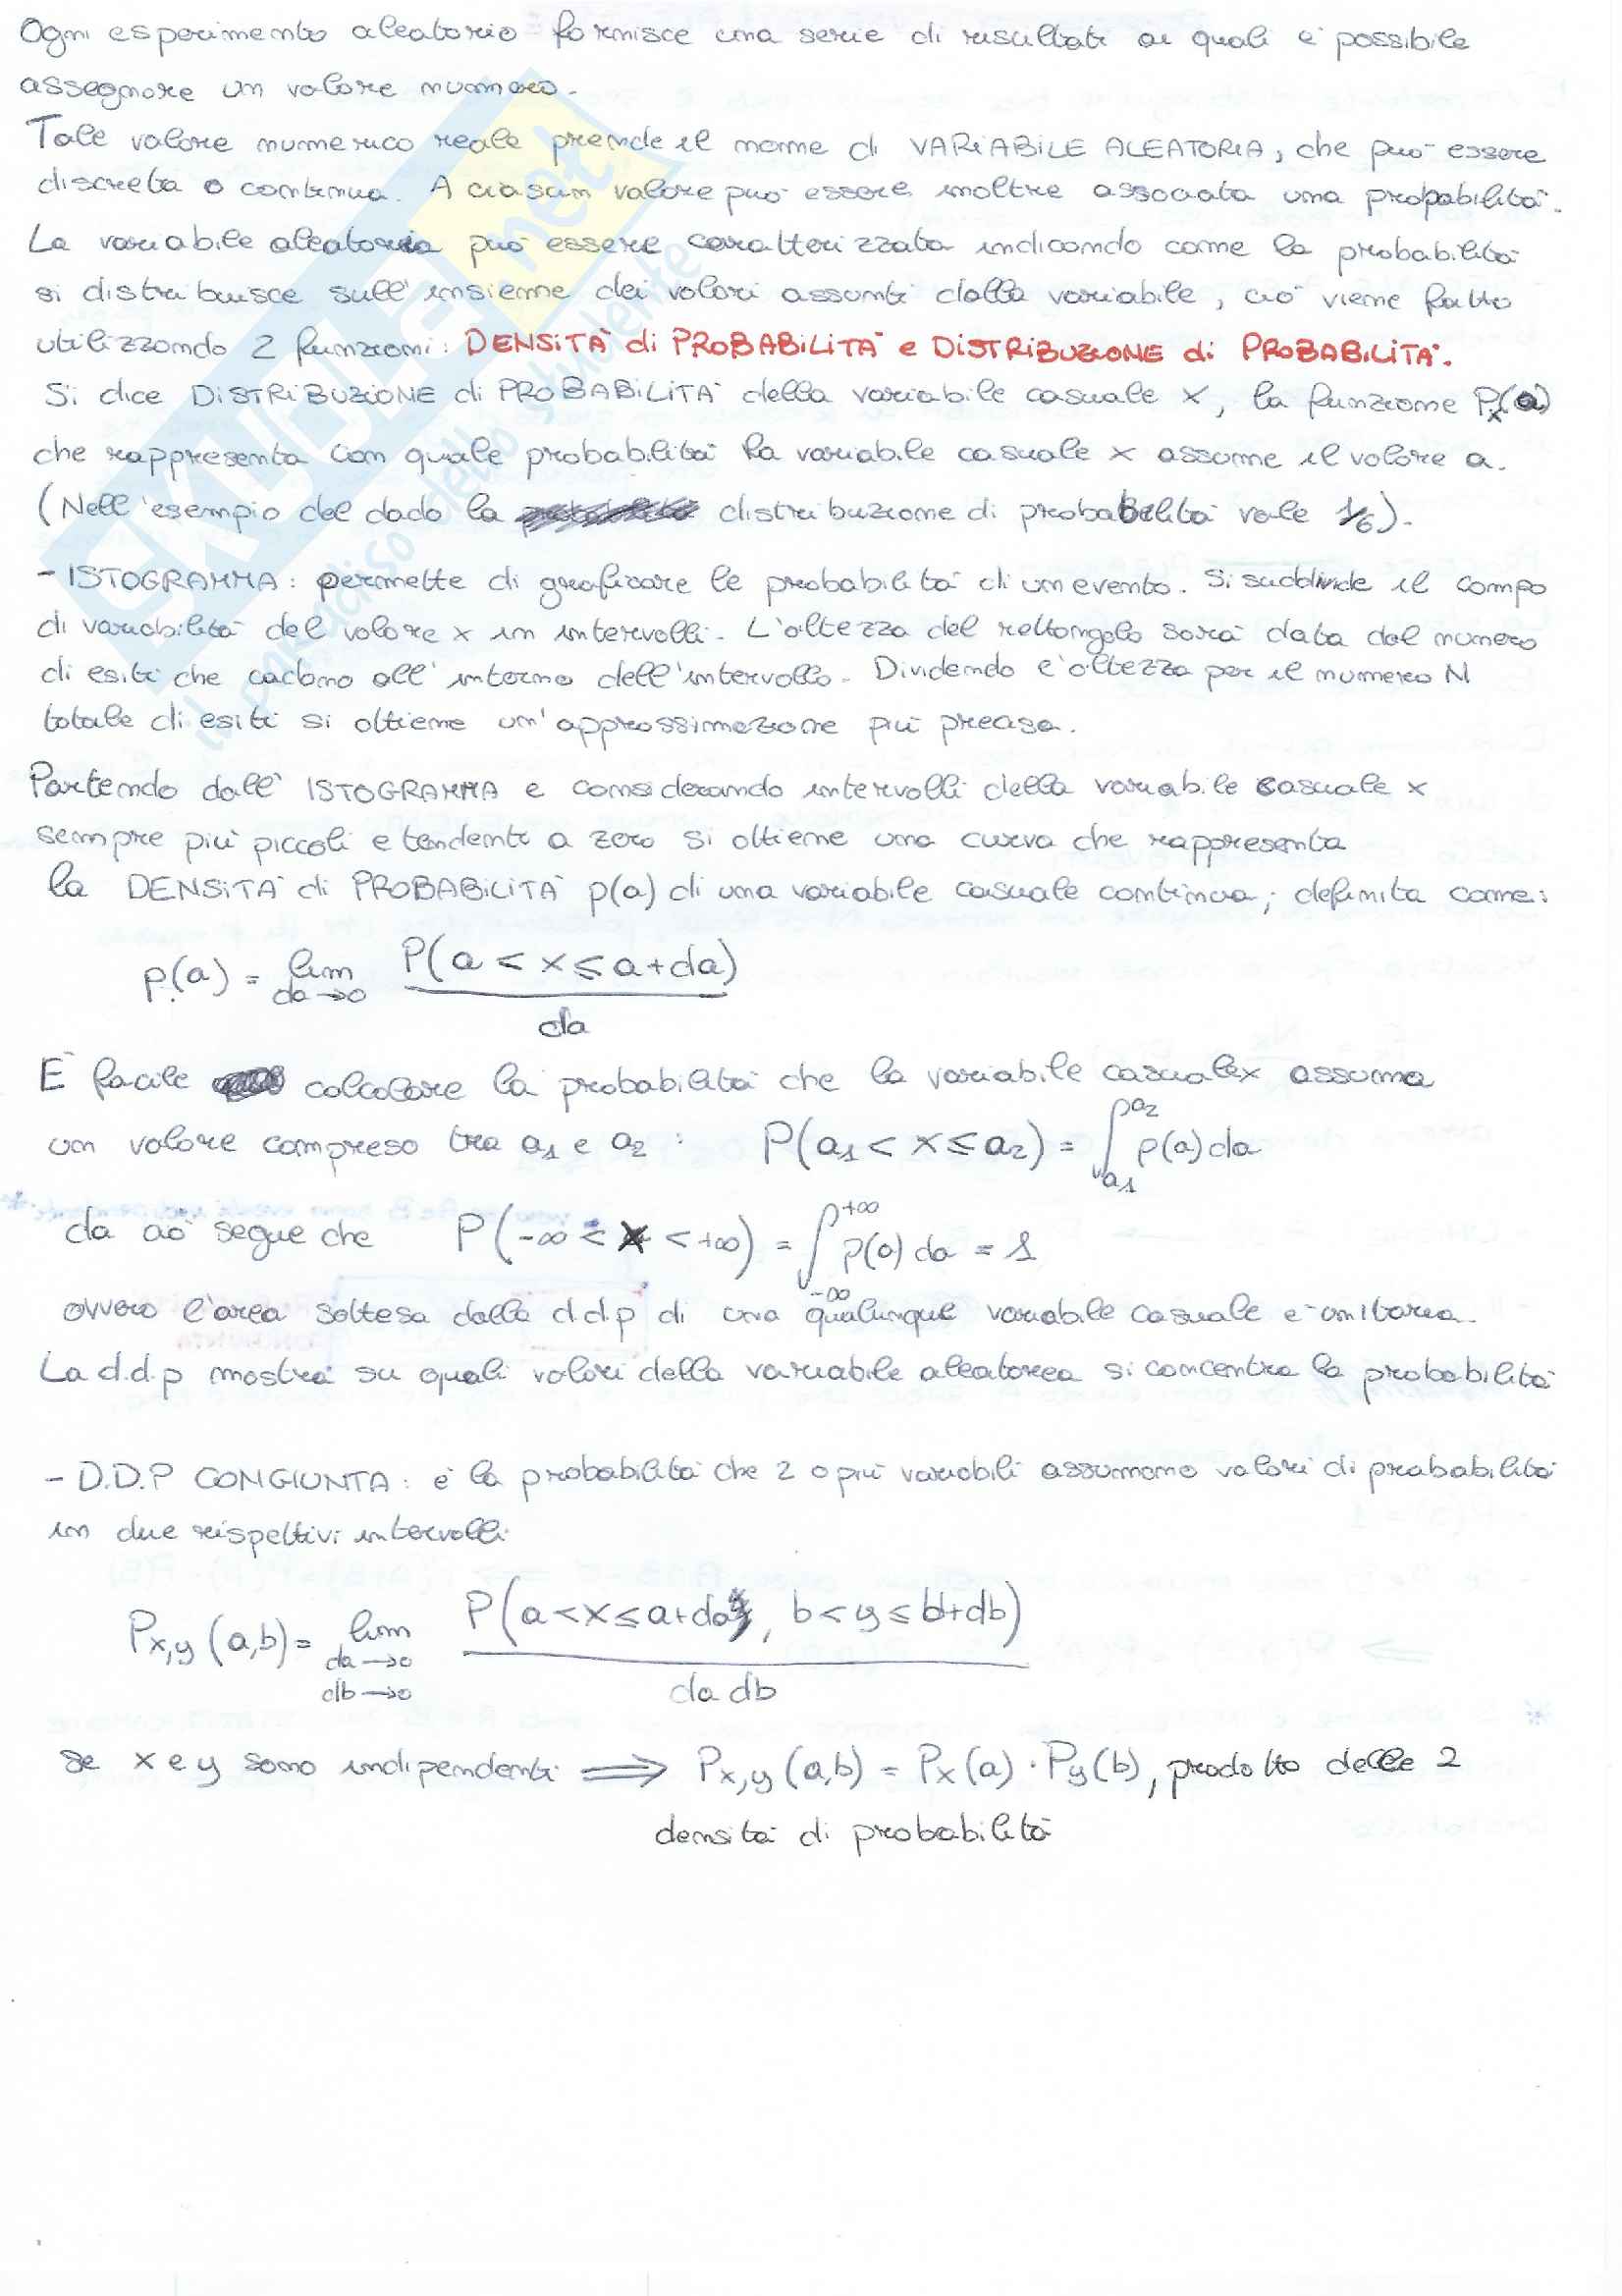 Ogni esperimento aleatorio fornisce una serie di risultati ai quali è possibile
assegnare un valore numerico.
Tale valore numerico reale prende il nome di VARIABILE ALEATORIA, che può essere
discreta o continua. A ciascun valore può essere inoltre associata una probabilità.
La variabile aleatoria può essere caratterizzata indicando come la probabilità
si distribuisce sull'insieme dei valori assunti dalla variabile, ciò viene fatto
utilizzando 2 funzioni: DENSITÀ di PROBABILITÀ e DISTRIBUZIONE di PROBABILITÀ.
Si dice DISTRIBUZIONE di PROBABILITÀ della variabile casuale x, la funzione Px(a)
che rappresenta con quale probabilità la variabile casuale x assume il valore a.
(Nell'esempio del dado la distribuzione di probabilità vale 1/6).
- ISTOGRAMMA: permette di graficare le probabilità di un evento. Si suddivide il campo
di variabilità del valore x in intervalli. L'altezza del rettangolo sarà data dal numero
di esiti che cadono all'interno dell'intervallo. Dividendo l'altezza per il numero N
totale di esiti si ottiene un'approssimazione più precisa.
Partendo dall'ISTOGRAMMA e considerando intervalli della variabile casuale x
sempre più piccoli e tendenti a zero si ottiene una curva che rappresenta
la DENSITÀ di PROBABILITÀ p(a) di una variabile casuale continua, definita come:
p(a) = lim da→0 P(a < x ≤ a+da) / da
È facile calcolare la probabilità che la variabile casuale x assuma
un valore compreso tra a1 e a2 : P(a1 < x ≤ a2) = ∫a1^a2 p(a) da
da ciò segue che P(-∞ < x < +∞) = ∫-∞^+∞ p(a) da = 1
ovvero l'area sottesa dalla d.d.p di una qualunque variabile casuale è unitaria.
La d.d.p mostra su quali valori della variabile aleatorea si concentra la probabilità
- D.D.P CONGIUNTA: è la probabilità che 2 o più variabili assumono valori di probabilità
in due rispettivi intervalli
Px,y (a,b) = lim da→0 db→0 P(a<x≤a+da, b<y≤b+db) / da db
se x e y sono indipendenti ⟹ Px,y (a,b) = Px(a) · Py(b), prodotto delle 2
densità di probabilità
SKUOLA.net
il paradiso dello studente